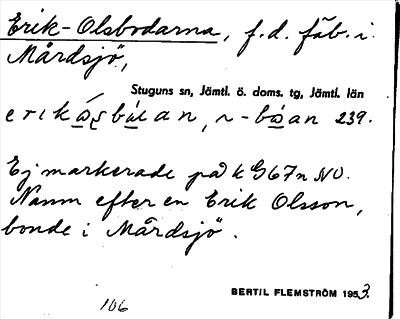 Erik-Olsbodarna, f.d. fäb. i
Mårdsjö,
Stuguns sn, Jämtl. ö. doms. tg, Jämtl. län
239.
Ej markerade på k G67n NO.
Namn efter en Erik Olsson,
bonde i Mårdsjö.
BERTIL FLEMSTRÖM 1953.
106